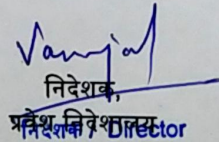 निदेशक,
प्रवेश निदेशालय
निदेशक / Director